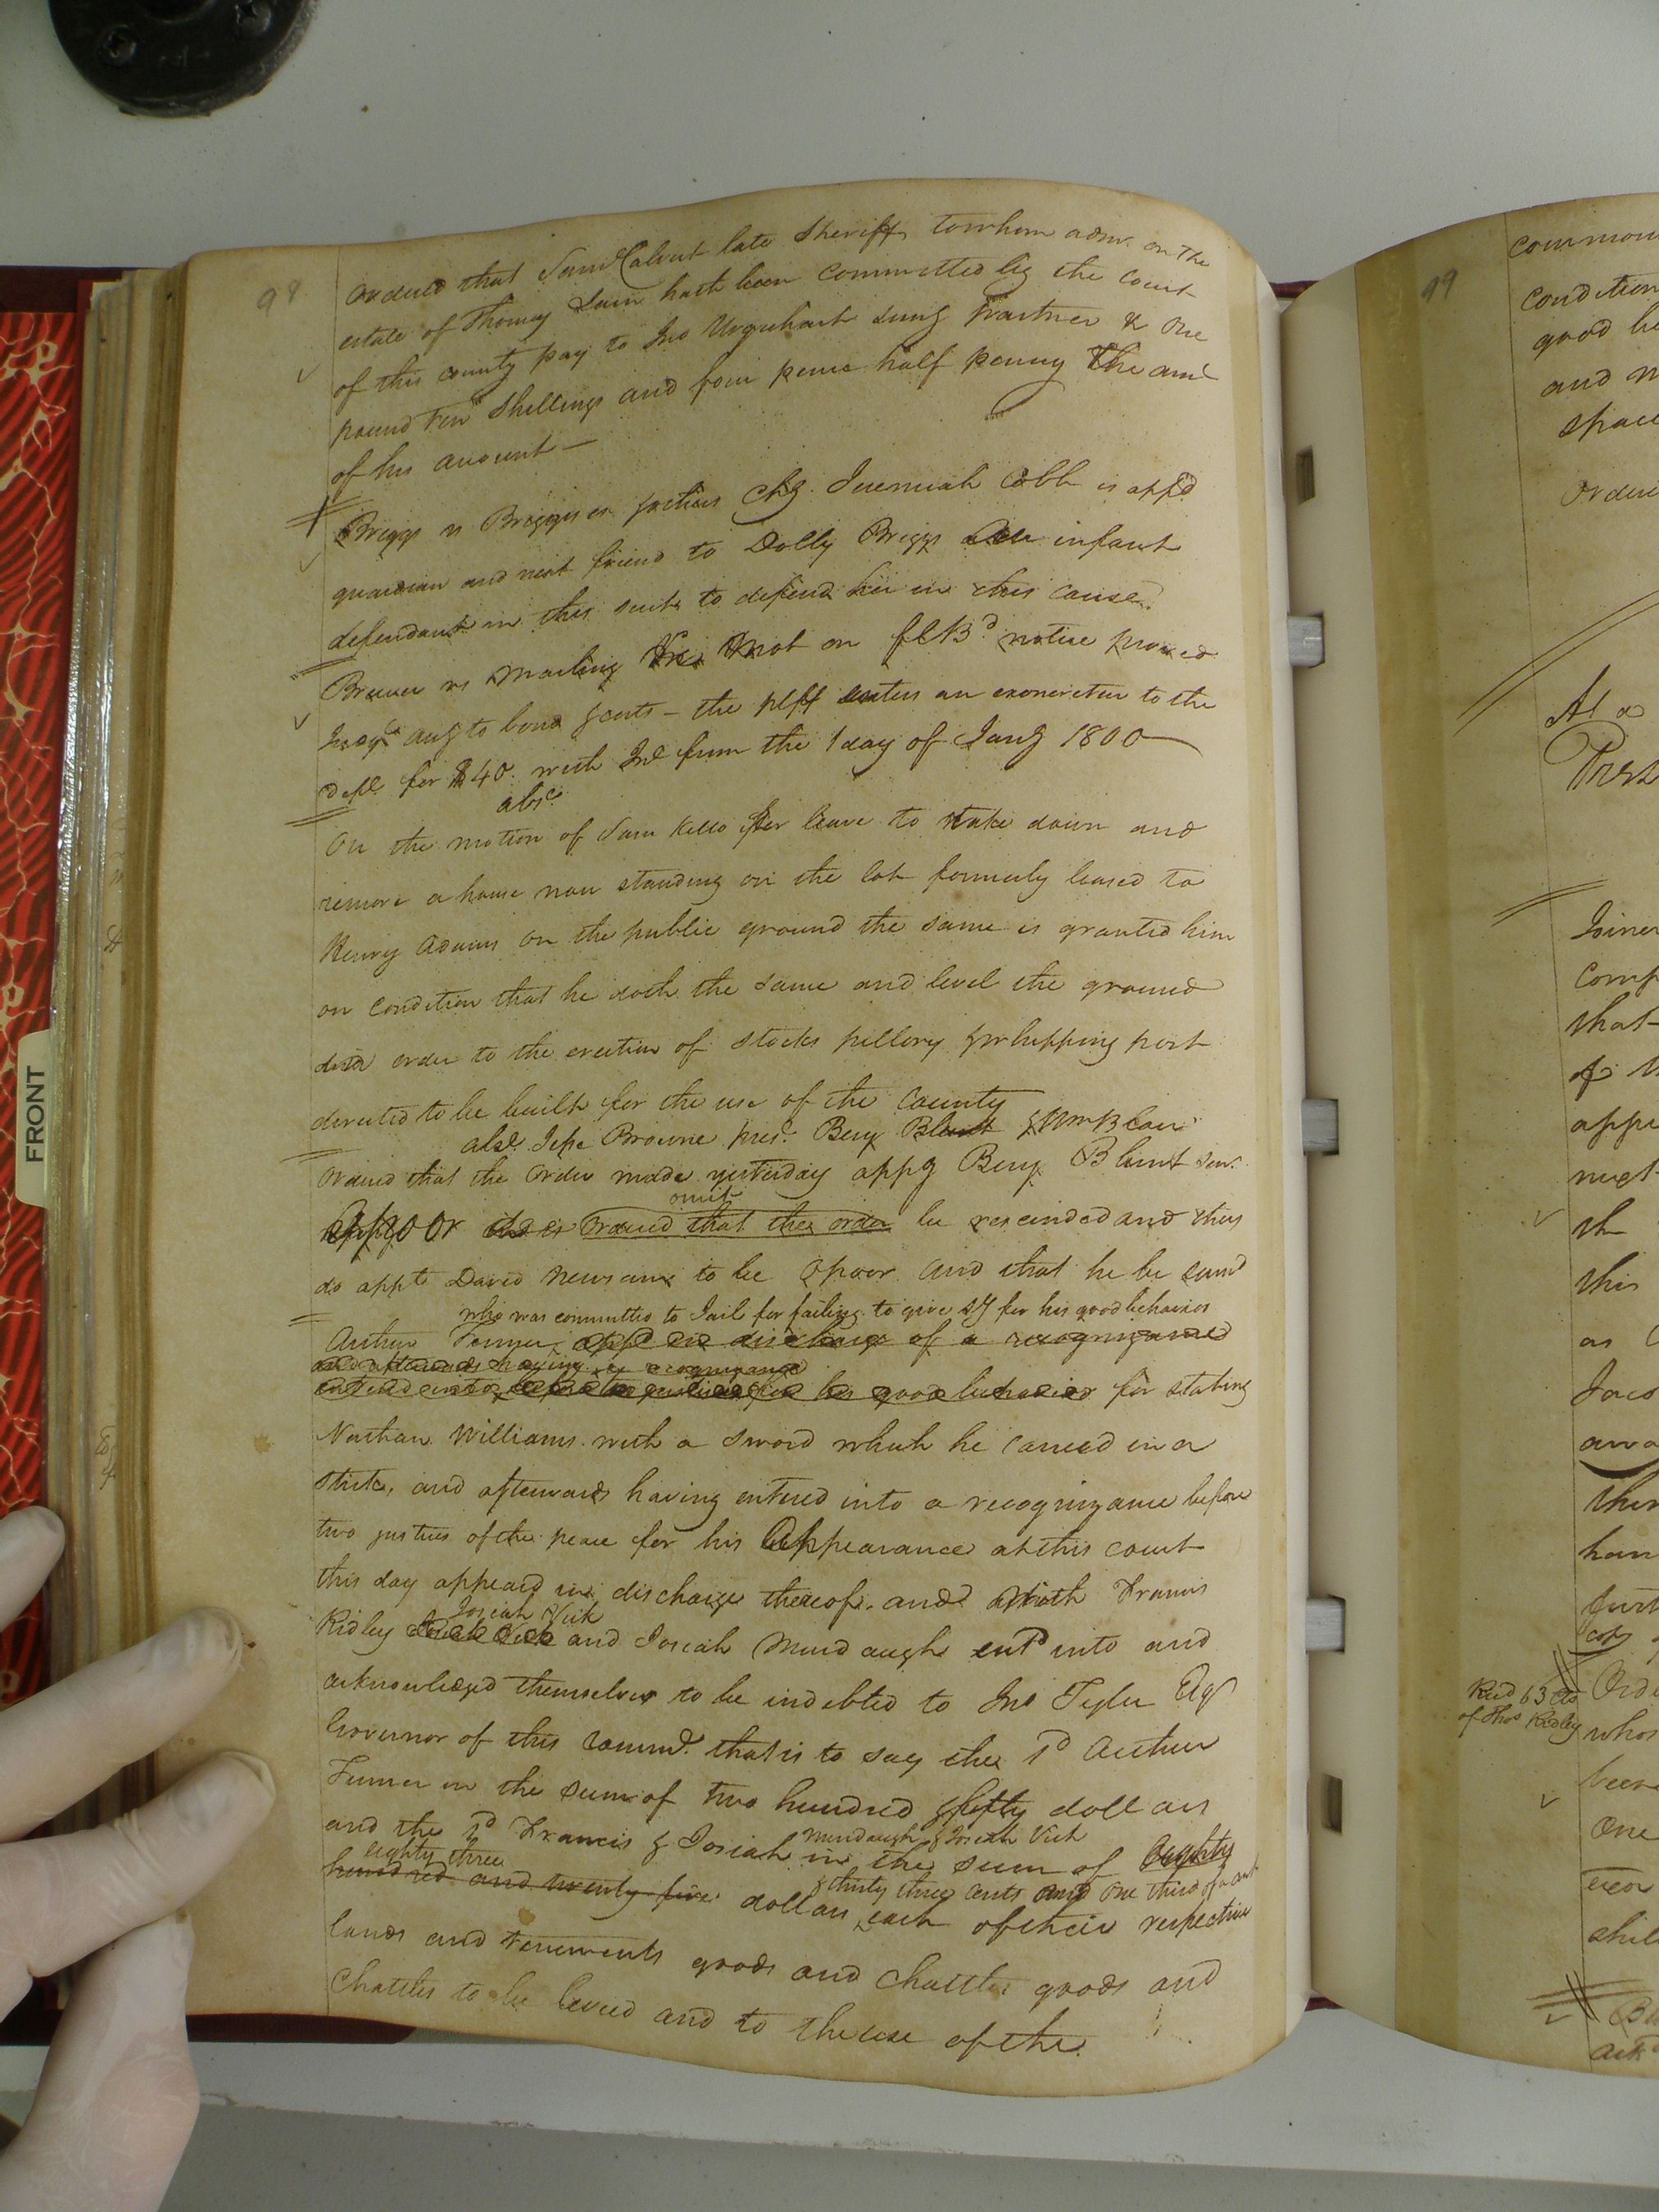 98
Ordered that Saml Calvert late Sheriff, to whom adm. on the
estate of Thomas Lain hath been committed by the Court
of this county pay to Jno Urquhart survg Partner & One
pound Ten Shillings and four pence half penny the amt
of his account —
Briggs vs Briggs es Chy. Jeremiah Cobb is app'd
guardian and next friend to Dolly Briggs an infant
defendant in this suit to defend her in this cause.
vs mot on notice proved
to bond & costs — the pltf enters an exoneretur to the
deft for $40. with Int from the 1 day of Jany 1800 —
abs.
On the motion of Sam Kello for leave to take down and
remove a house now standing on the lot formerly leased to
Henry Adams on the public ground the same is granted him
on condition that he doth the same and level the ground
order to the erection of stocks pillory & whipping post
directed to be built for the use of the County
abs. Jesse Browne pres. Benj Blunt & Wm Blow
Ordered that the order made yesterday appg Benj. Blunt Sen.
omit
Ordered that the order be rescinded and they
do appt David Newsum to be and that he be sumd
who was committed to Jail for failing to give Sy for his good behavior
Arthur Turner appd in discharge of a recognizance
and afterwards having recognizance
entered into before two justices for his good behavior for stabing
Nathan Williams with a sword which he caried in a
stick, and afterwards having entered into a recognizance before
two justices of the peace for his appearance at this court
this day appeard in discharge thereof. and with Francis
Josiah Vick
Ridley and Josiah Murdaugh entd into and
acknowledged themselves to be indebted to Jno Tyler Esqr
Governor of this Commd. that is to say the sd Arthur
Turner in the sum of two hundred & fifty dollars
Murdaugh & Josiah Vick
and the sd Francis & Josiah in the sum of Eighty
eighty three
& thirty three cents and one third of a cent
hundred and twenty five dollars each of their respective
lands and tenements goods and Chattles goods and
Chattles to be levied and to the use of the
FRONT
99
common
condition
good be
and m
space
Ordere
At a
Prese
Joiner
comp
that
of
appe
next
th
this
as
Jaco
and
then
han
furt
cos
63
of Thos Ridley
Orde
whos
been
One
ever
chil